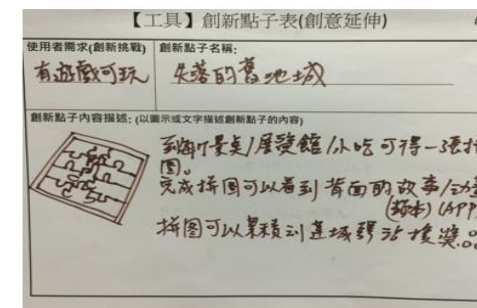 【工具】創新點子表(創意延伸)
使用者需求(創新挑戰)
創新點子名稱:
有遊戲可玩
失落的舊地城
創新點子內容描述: (以圖示或文字描述創新點子的內容)
到每個景點/展覽館/小吃可得一張拼
圖。
完成拼圖可以看到背面的故事/動畫
(紙本) (APP
拼圖可以累積到達城驛站換獎。